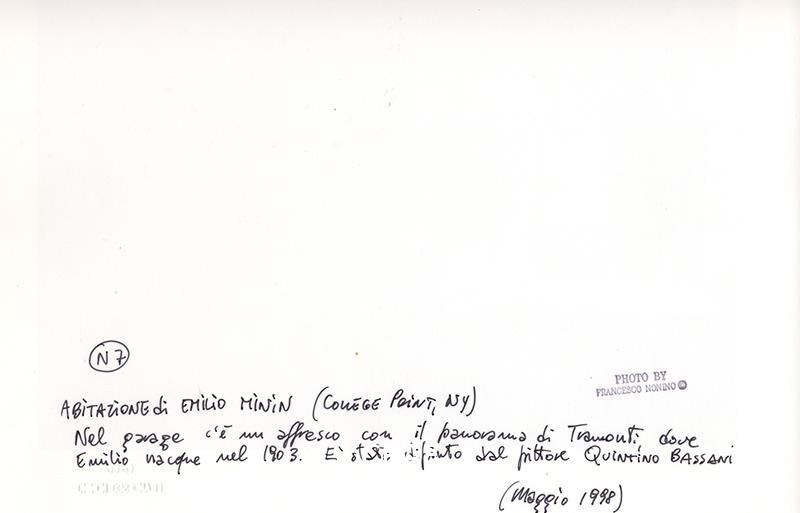 N7
PHOTO BY
FRANCESCO NONINO
ABITAZIONE di EMILIO MININ (COLLEGE POINT, NY)
Nel garage c'è un affresco con il panorama di Tramonti, dove
Emilio nacque nel 1903. E' stato dipinto dal pittore QUINTINO BASSANI
(Maggio 1998)